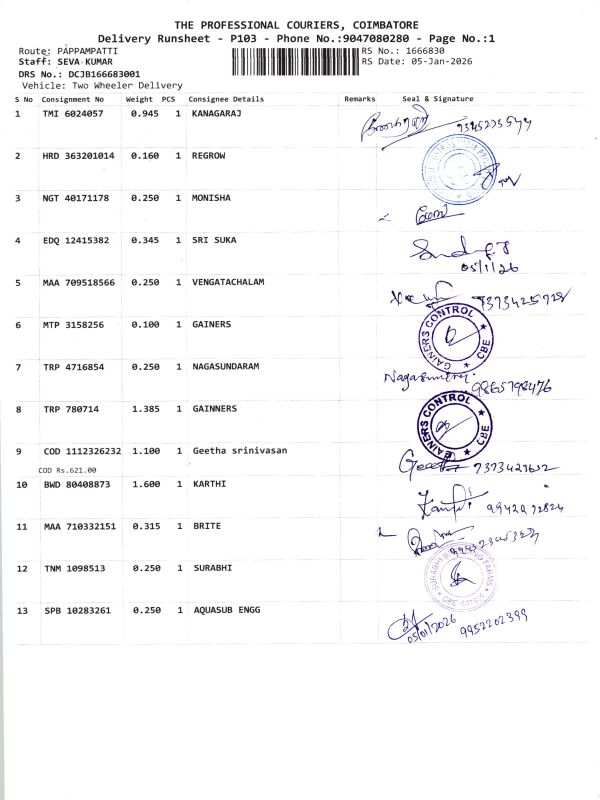 THE PROFESSIONAL COURIERS, COIMBATORE
Delivery Runsheet - P103 - Phone No.:9047080280 - Page No.:1
Route: PAPPAMPATTI RS No.: 1666830
Staff: SEVA KUMAR RS Date: 05-Jan-2026
DRS No.: DCJB166683001
Vehicle: Two Wheeler Delivery
S No Consignment No Weight PCS Consignee Details Remarks Seal & Signature
1 TMI 6024057 0.945 1 KANAGARAJ
2 HRD 363201014 0.160 1 REGROW
3 NGT 40171178 0.250 1 MONISHA
4 EDQ 12415382 0.345 1 SRI SUKA
05/1/26
5 MAA 709518566 0.250 1 VENGATACHALAM
6 MTP 3158256 0.100 1 GAINERS
GAINERS CONTROL CBE
7 TRP 4716854 0.250 1 NAGASUNDARAM
9865798476
8 TRP 780714 1.385 1 GAINNERS
GAINERS CONTROL CBE
9 COD 1112326232 1.100 1 Geetha srinivasan
COD Rs.621.00
10 BWD 80408873 1.600 1 KARTHI
11 MAA 710332151 0.315 1 BRITE
12 TNM 1098513 0.250 1 SURABHI
13 SPB 10283261 0.250 1 AQUASUB ENGG
05/01/2026 9952202399